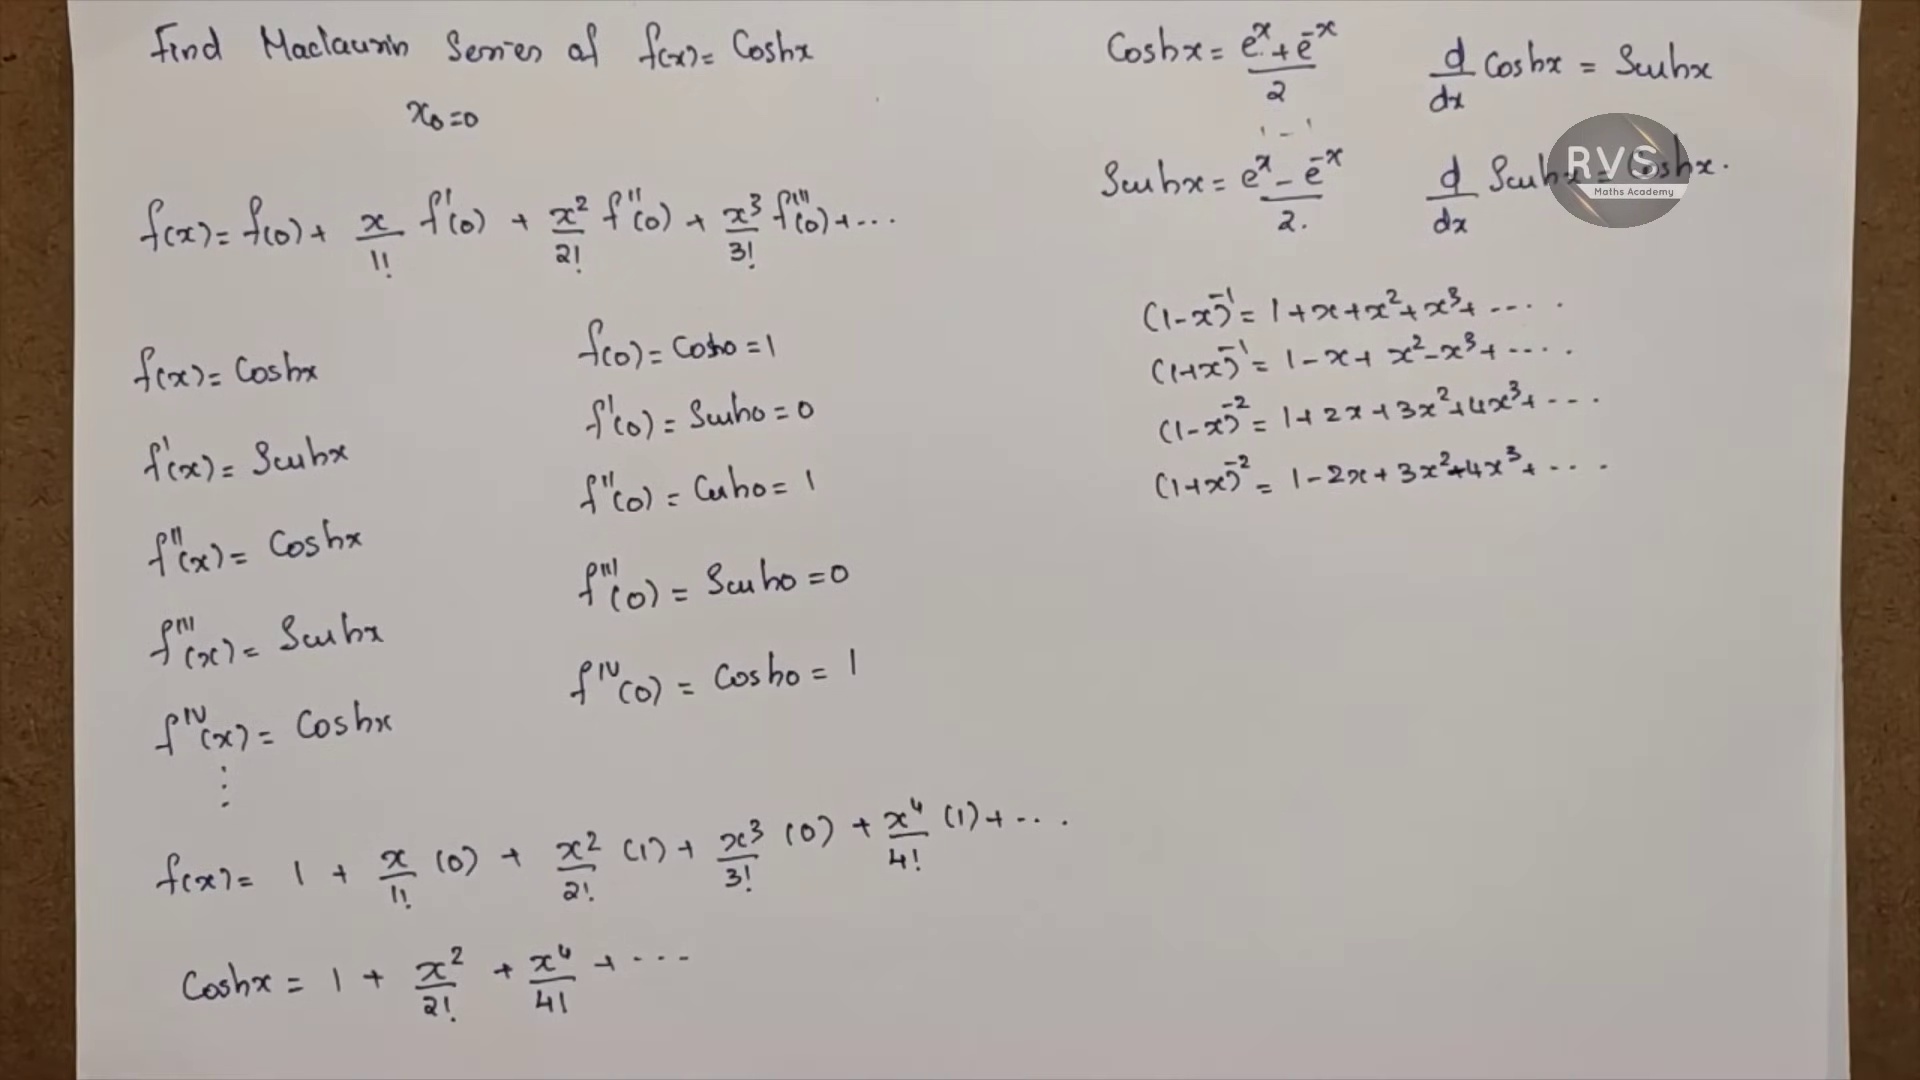 Find Maclaurin Series of f(x) = Coshx
x₀ = 0
f(x) = f(0) + x/1! f'(0) + x²/2! f''(0) + x³/3! f'''(0) + ...
f(x) = Coshx
f(0) = Cosh0 = 1
f'(x) = Sinhx
f'(0) = Sinh0 = 0
f''(x) = Coshx
f''(0) = Cosh0 = 1
f'''(x) = Sinhx
f'''(0) = Sinh0 = 0
fᴵⱽ(x) = Coshx
fᴵⱽ(0) = Cosh0 = 1
⋮
f(x) = 1 + x/1! (0) + x²/2! (1) + x³/3! (0) + x⁴/4! (1) + ...
Coshx = 1 + x²/2! + x⁴/4! + ...
Coshx = (eˣ + e⁻ˣ)/2
d/dx Coshx = Sinhx
Sinhx = (eˣ - e⁻ˣ)/2.
d/dx Sinhx = Coshx.
RVS
Maths Academy
(1-x)⁻¹ = 1 + x + x² + x³ + ....
(1+x)⁻¹ = 1 - x + x² - x³ + ....
(1-x)⁻² = 1 + 2x + 3x² + 4x³ + ...
(1+x)⁻² = 1 - 2x + 3x² - 4x³ + ...